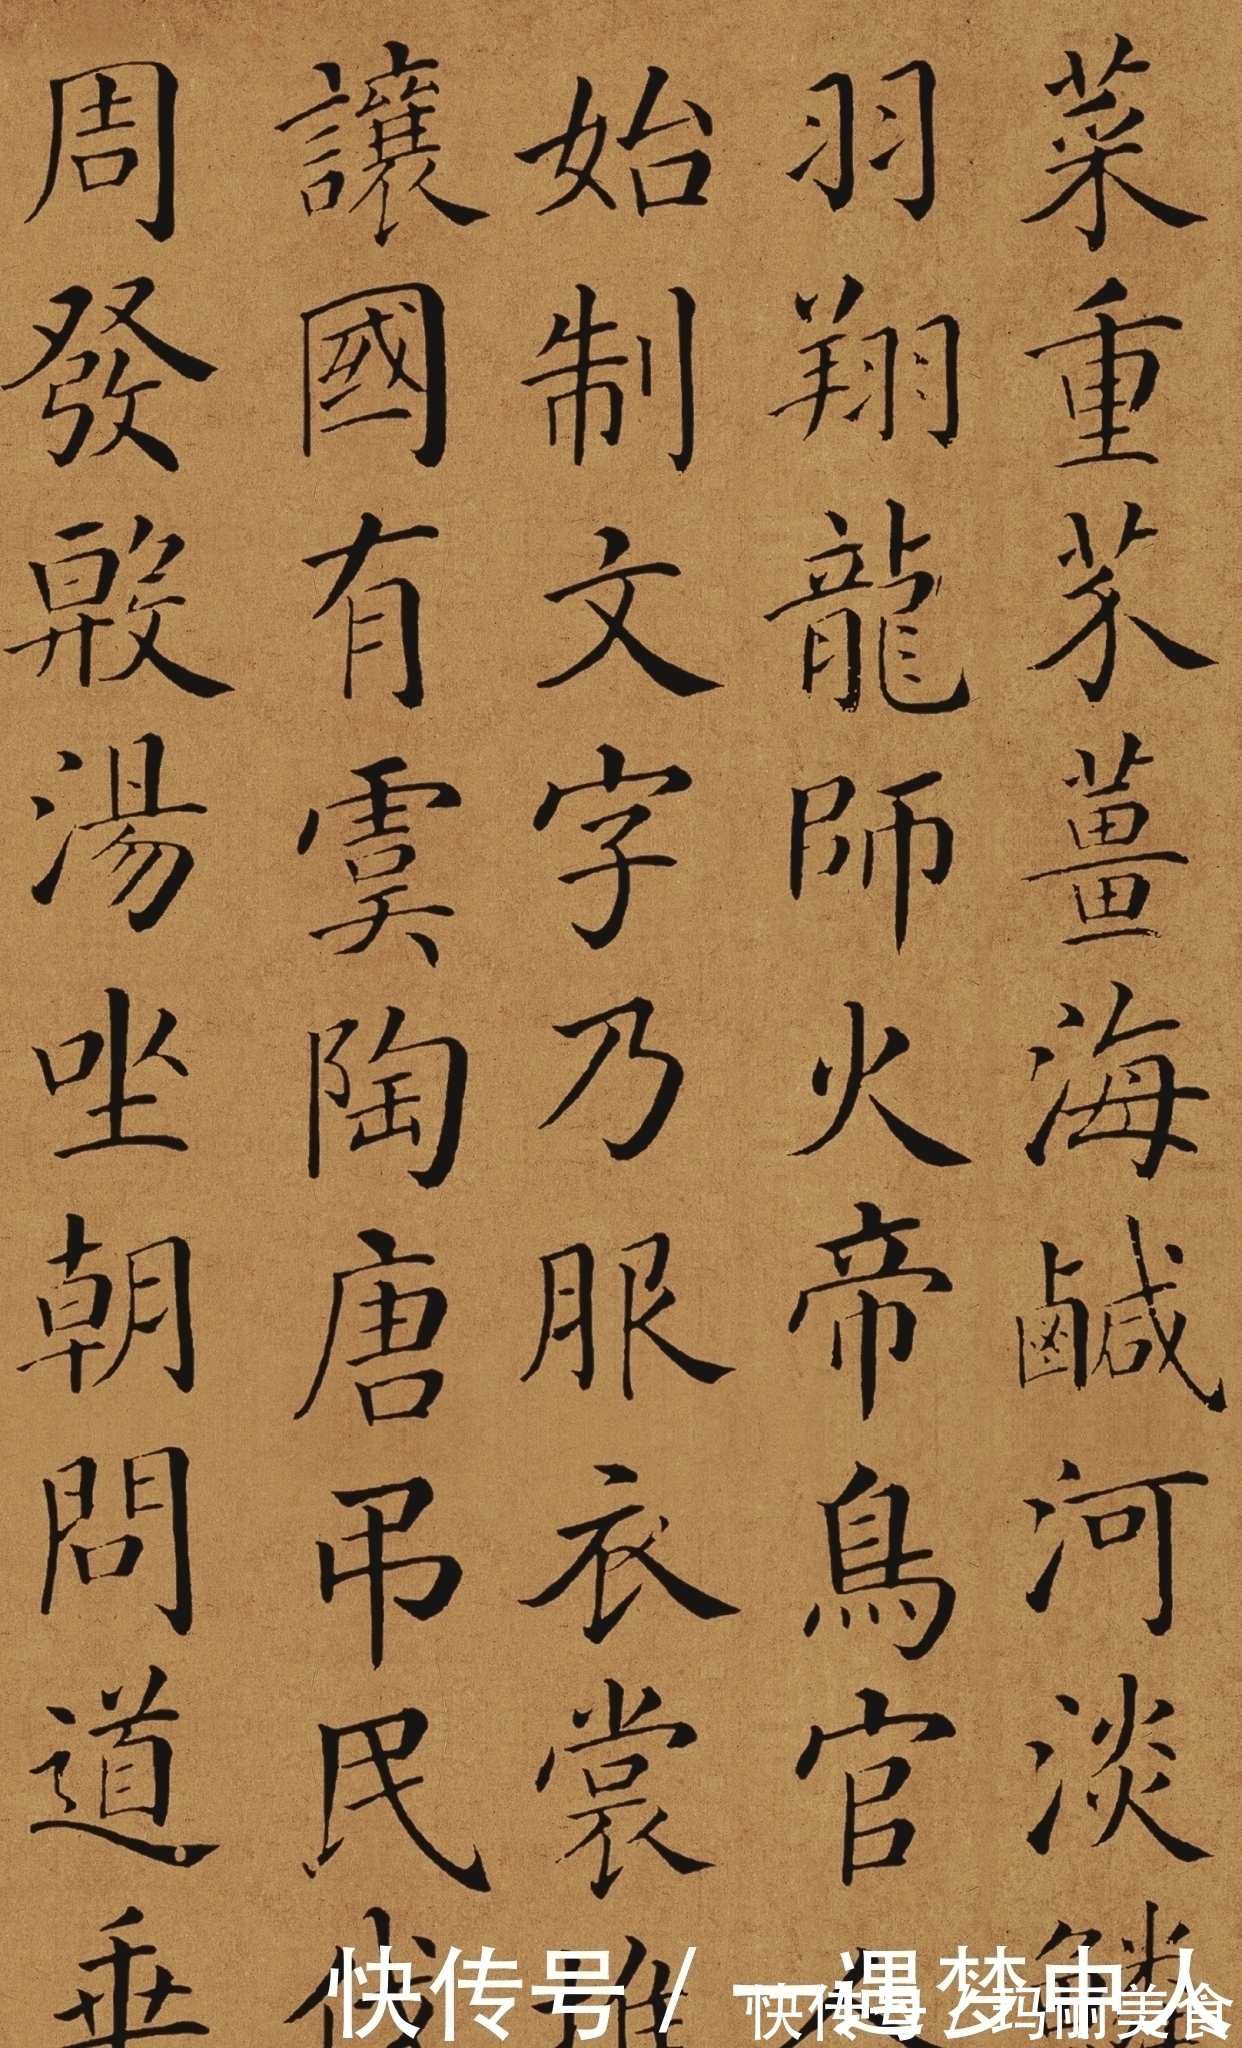 菜重芥薑海鹹河淡鱗
羽翔龍師火帝鳥官人
始制文字乃服衣裳推
讓國有虞陶唐弔民伐
周發殷湯坐朝問道垂
快传号/一遇梦中人
快传号/玛丽美食